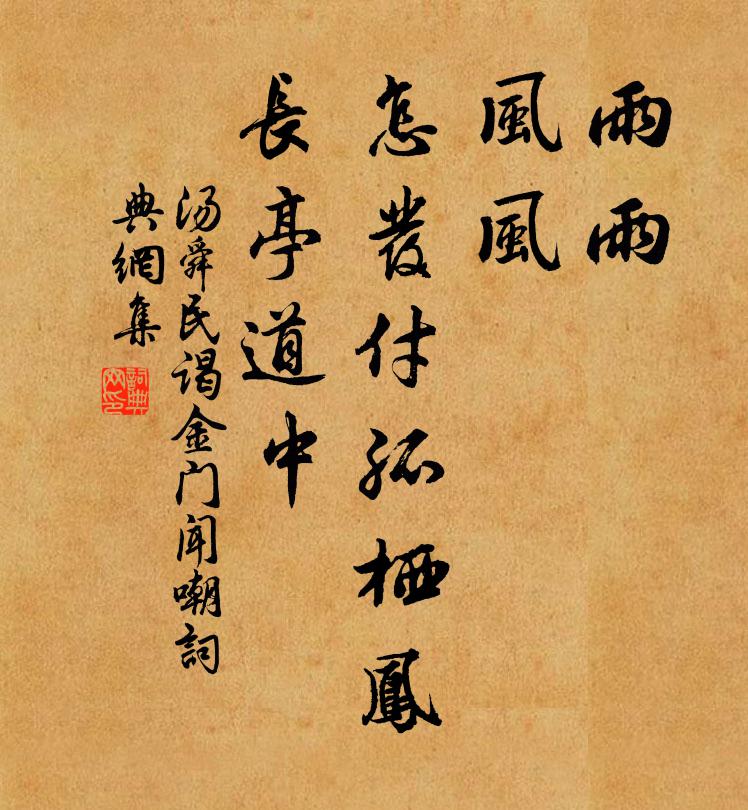 雨雨
風風
怎發付孤栖鳳
長亭道中
汤舜民谒金门闻嘲詞
典網集
詞典网印